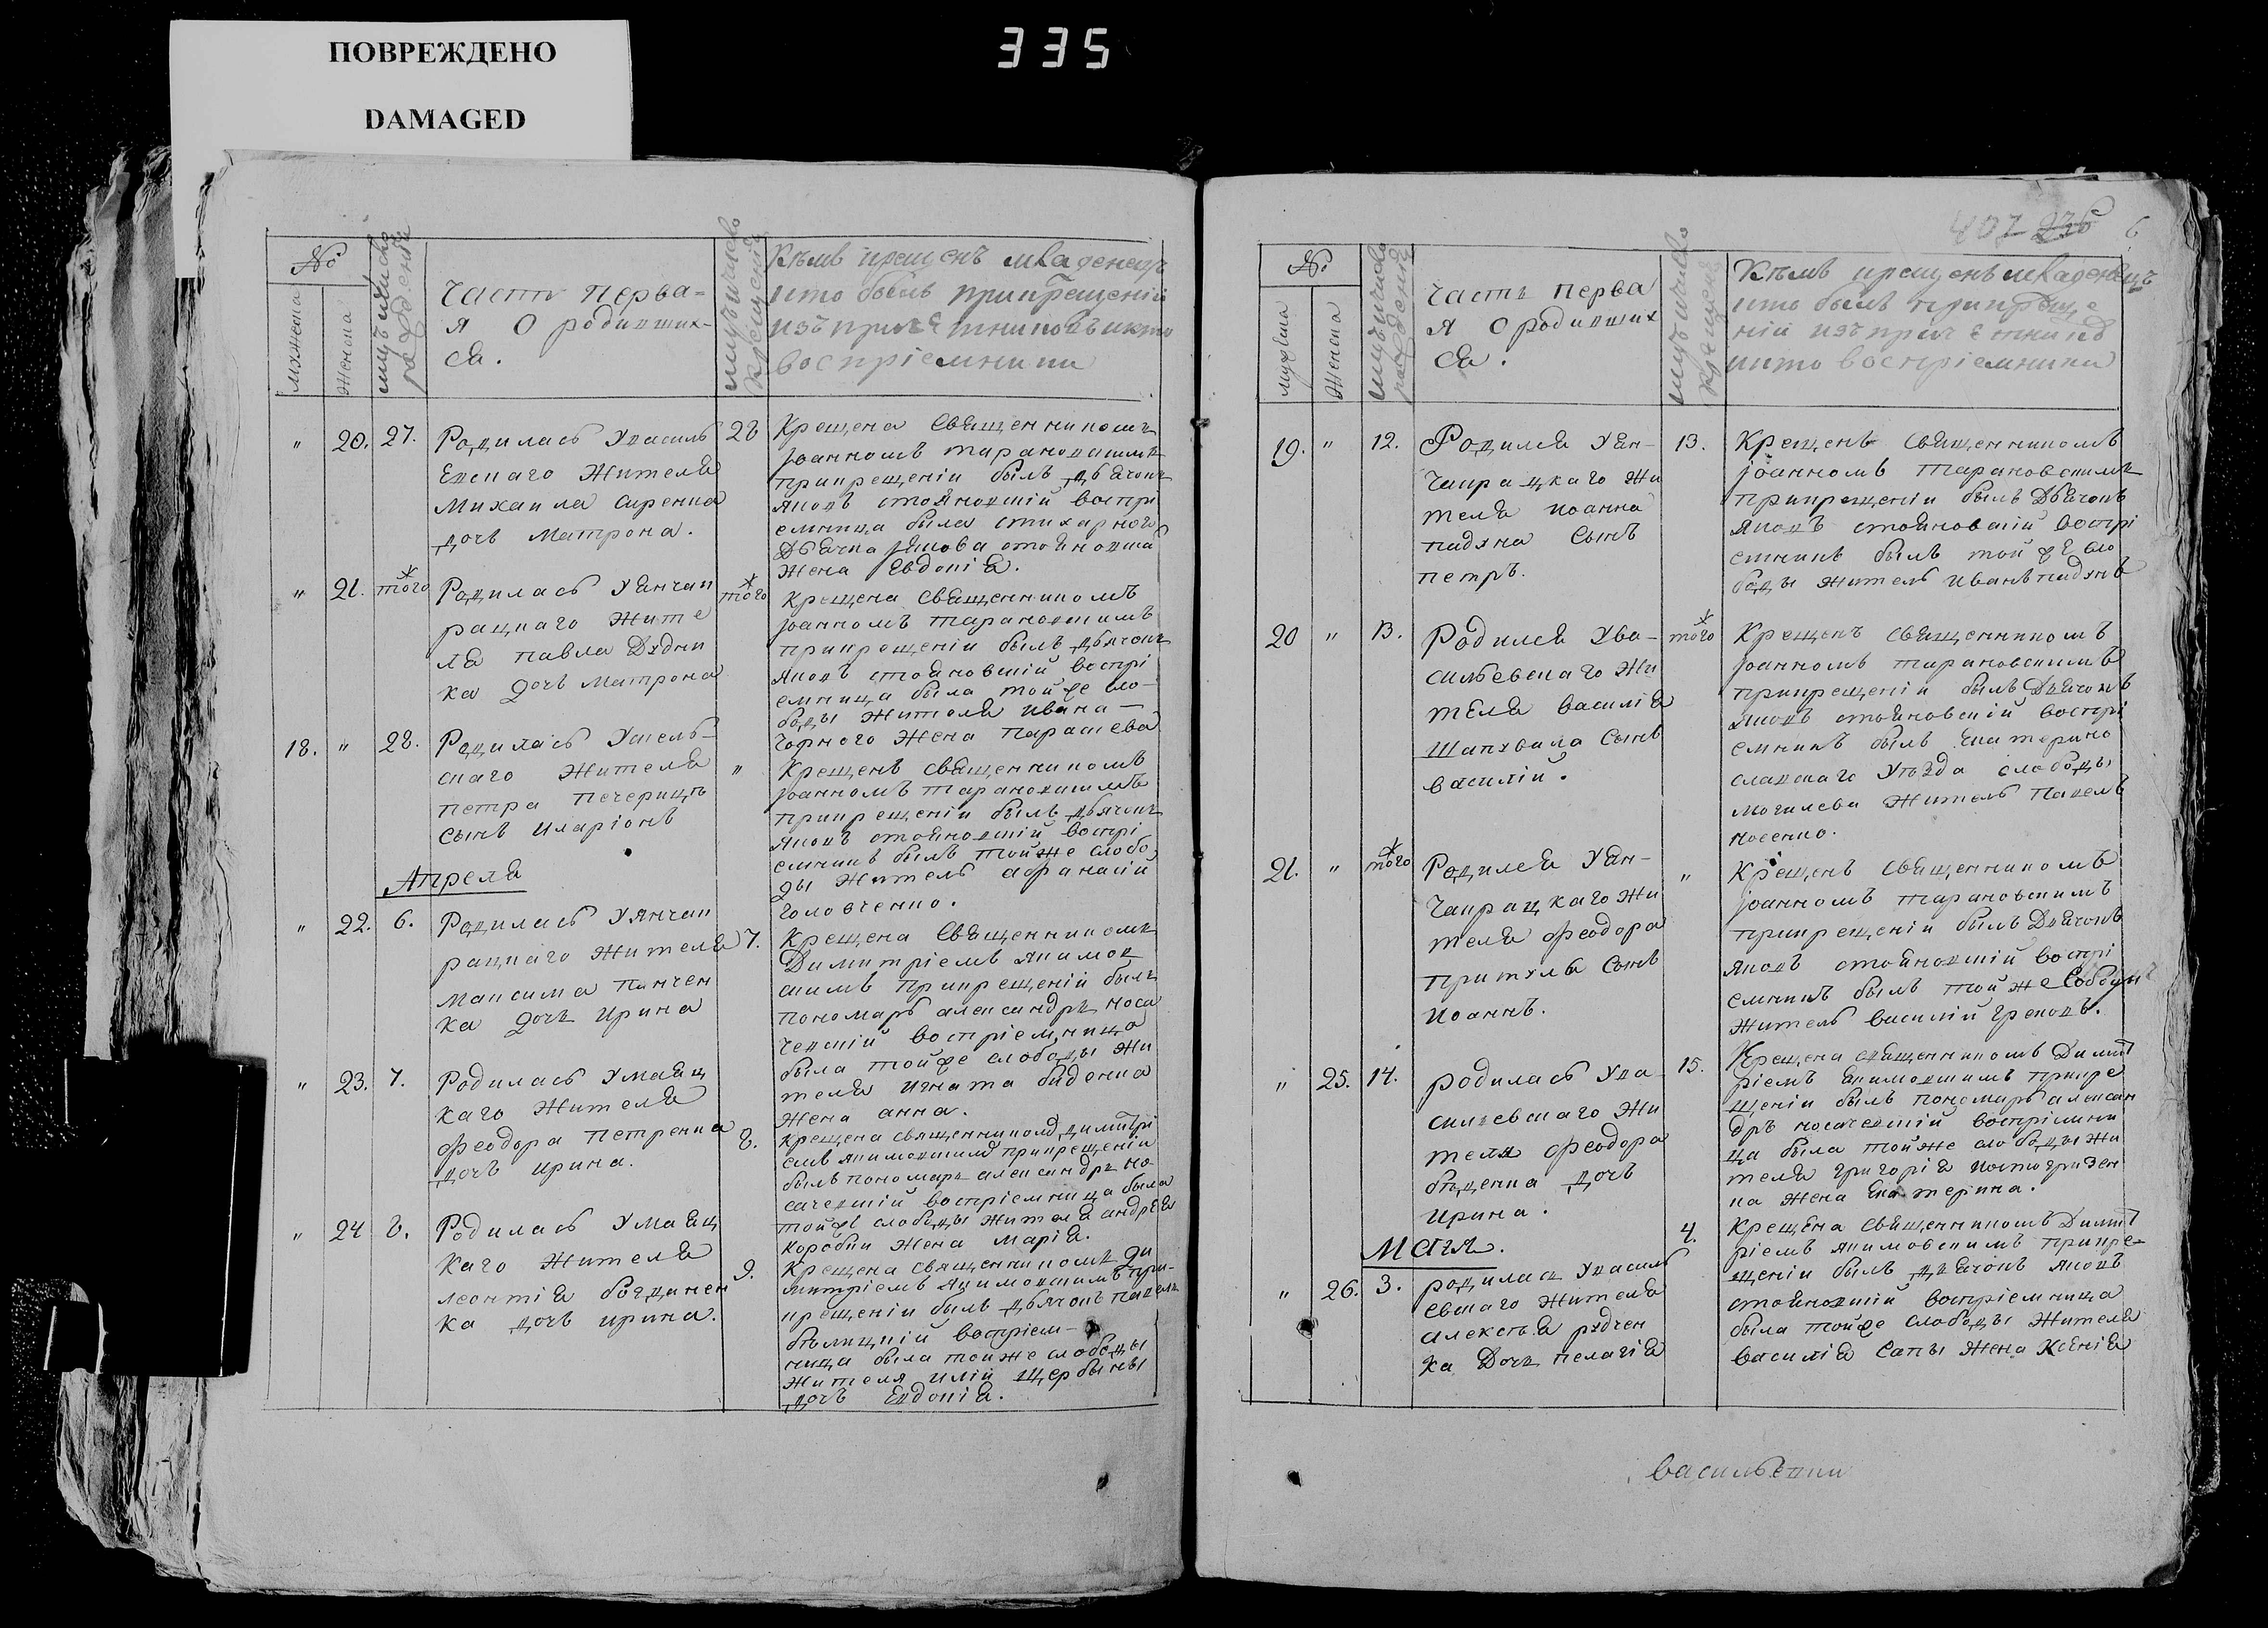 ПОВРЕЖДЕНО
DAMAGED
335
№
мужеска
женска
мцъ число рожденія
часть перва-
я О родивших-
ся.
мцъ число крещенія
Кѣмъ крещенъ младенецъ
кто былъ прикрещеніи
изъ причетниковъ и кто
воспріемники
" 20. 27.
Родилась Увасиль
евскаго Жителя
Михаила Сиренка
дочь Матрона.
28
Крещена Священникомъ
Іоанномъ Тарановскимъ
прикрещеніи былъ дьячокъ
Яковъ стойновскій воспрі
емница была стихарного
Дьячка Якова стойновска
Жена Евдокія.
" 21. того ж
Родилась Уянчак
рацкаго Жите
ля Павла Дудни
ка дочь Матрона
того ж
Крещена Священникомъ
Іоанномъ Тарановскимъ
прикрещеніи былъ дьячокъ
Яковъ стойновскій воспрі
емница была той же сло-
боды Жителя Ивана
Чорного Жена Парасева
18. " 28.
Родилась
скаго Жителя
Петра Печерицы
сынъ Иларіонъ
"
Крещенъ Священникомъ
Іоанномъ Тарановскимъ
прикрещеніи былъ дьячокъ
Яковъ стойновскій воспрі
емникъ былъ тойже слобо
ды Житель Афанасій
Головченко.
Апреля
" 22. 6.
Родилась Уянчак
рацкаго Жителя
Максима Панчен
ка дочь Ирина
7.
Крещена Священникомъ
Димитріемъ Якимов
скимъ прикрещеніи былъ
пономарь Александръ Носа
чевскій воспріемница
была той же слободы Жи
теля Игната
Жена Анна.
" 23. 7.
Родилась Умаяц
каго Жителя
Феодора Петренка
дочь Ирина.
8.
Крещена священникомъ Димитрі
емъ Якимовскимъ прикрещеніи
былъ пономарь Александръ Но-
сачевскій воспріемница была
той же слободы Жителя Андрея
Коробки Жена Марія.
" 24 8.
Родилась Умаяц
каго Жителя
Леонтія Богданен
ка дочь Ирина.
9.
Крещена священникомъ Ди
митріемъ Якимовскимъ при-
крещеніи былъ дьячокъ Павелъ
воспріем-
ница была тойже слободы
Жителя Иліи Щербины
дочь Евдокія.
407 236 6
№
мужеска
женска
мцъ число рожденія
часть перва
я О родивших
ся.
мцъ число крещенія
Кѣмъ крещенъ младенецъ
кто былъ прикреще
ніи изъ причетниковъ
и кто воспріемники
19. " 12.
Родился Уян-
чакрацкаго Жи
теля Иоанна
сынъ
Петръ.
13.
Крещенъ Священникомъ
Іоанномъ Тарановскимъ
прикрещеніи былъ Дьячокъ
Яковъ стойновскій воспрі
емникъ былъ той же сло
боды Житель Иванъ
20 " 13.
Родился Ува-
сильевскаго Жи
теля Василія
Шапувала Сынъ
Василій.
того ж
Крещенъ Священникомъ
Іоанномъ Тарановскимъ
прикрещеніи былъ Дьячокъ
Яковъ стойновскій воспрі
емникъ былъ Екатерино
славскаго Уѣзда слободы
Могилева Житель Павелъ
Носенко.
21. " того ж
Родился Уян-
чакрацкаго Жи
теля Феодора
Притулы Сынъ
Иоаннъ.
"
Крещенъ Священникомъ
Іоанномъ Тарановскимъ
прикрещеніи былъ Дьячокъ
Яковъ стойновскій воспрі
емникъ былъ той же Слободы
Житель Василій Грековъ.
" 25. 14.
родилась Ува-
сильевскаго Жи
теля Феодора
дочь
Ирина.
15.
Крещена священникомъ Димит
ріемъ Екимовскимъ прикре
щеніи былъ пономарь Алексан
дръ Носачевскій воспріемни
ца была тойже слободы Жи
теля Григорія Костогризен
ка Жена Екатерина.
Мая.
" 26. 3.
родилась Увасиль
евскаго Жителя
Алексѣя Рудчен
ка Дочь Пелагія
4.
Крещена Священникомъ Димит
ріемъ Якимовскимъ прикре-
щеніи былъ дьячокъ Яковъ
стойновскій воспріемница
была той же слободы Жителя
Василія Сапы Жена Ксенія
Васильевки